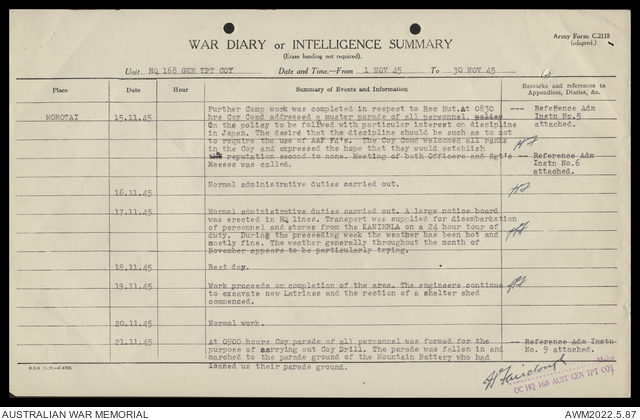 Army Form C.2118
(adapted.)
WAR DIARY or INTELLIGENCE SUMMARY
(Erase heading not required).
Unit HQ 168 GEN TPT COY Date and Time.—From 1 NOV 45 To 30 NOV 45
Place Date Hour Summary of Events and Information Remarks and references to
Appendices, Diaries, &c.
Further Camp work was completed in respect to Rec Hut. At 0830 --- Reference Adm
MOROTAI 15.11.45 hrs Coy Comd addressed a muster parade of all personnel, policy Instn No.5
On the policy to be followed with particular interest on discipline attached.
in Japan. The desire that the discipline should be such as to not
to require the use of AAF F4's. The Coy Comd welcomed all ranks
in the Coy and expressed the hope that they would establish
reputation second to none. Meeting of both Officers and Sgt's --- Reference Adm
Messes was called. Instn No.6
attached.
Normal administrative duties carried out.
16.11.45
17.11.45 Normal administrative duties carried out. A large notice board
was erected in HQ lines. Transport was supplied for disembarkation
of personnel and stores from the KANIMBLA on a 24 hour tour of
duty. During the preceeding week the weather has been hot and
mostly fine. The weather generally throughout the month of
November appears to be particularly trying.
18.11.45 Rest day.
19.11.45 Work proceeds on completion of the area. The engineers continue
to excavate new Latrines and the rection of a shelter shed
commenced.
20.11.45 Normal work.
21.11.45 At 0900 hours Coy parade of all personnel was formed for the --- Reference Adm Instn
purpose of carrying out Coy Drill. The parade was fallen in and No. 9 attached.
marched to the parade ground of the Mountain Battery who had
loaned us their parade ground.
Major
OC HQ 168 AUST GEN TPT COY
AUSTRALIAN WAR MEMORIAL
AWM2022.5.87